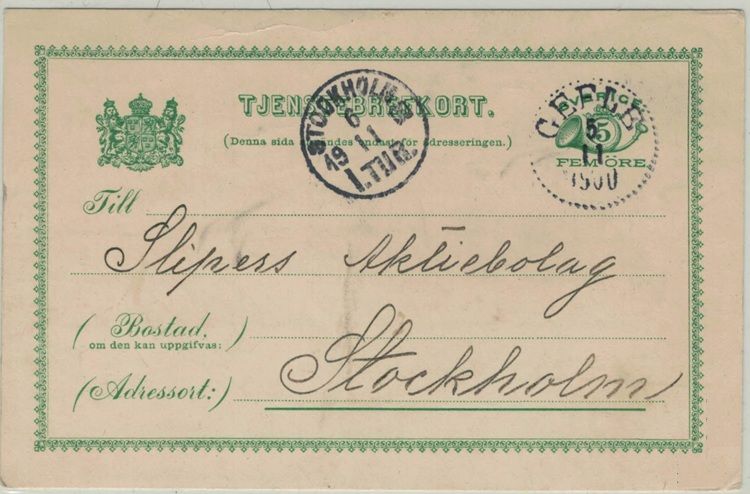 TJENSTEBREFKORT.
(Denna sida användes endast för adresseringen.)
SVERIGE
5
FEM ÖRE.
STOCKHOLM
6
11
19
1.TUR.
GEFLE
5
11
1900
Till
Slipers Aktiebolag
(Bostad,
om den kan uppgifvas:)
(Adressort:)
Stockholm